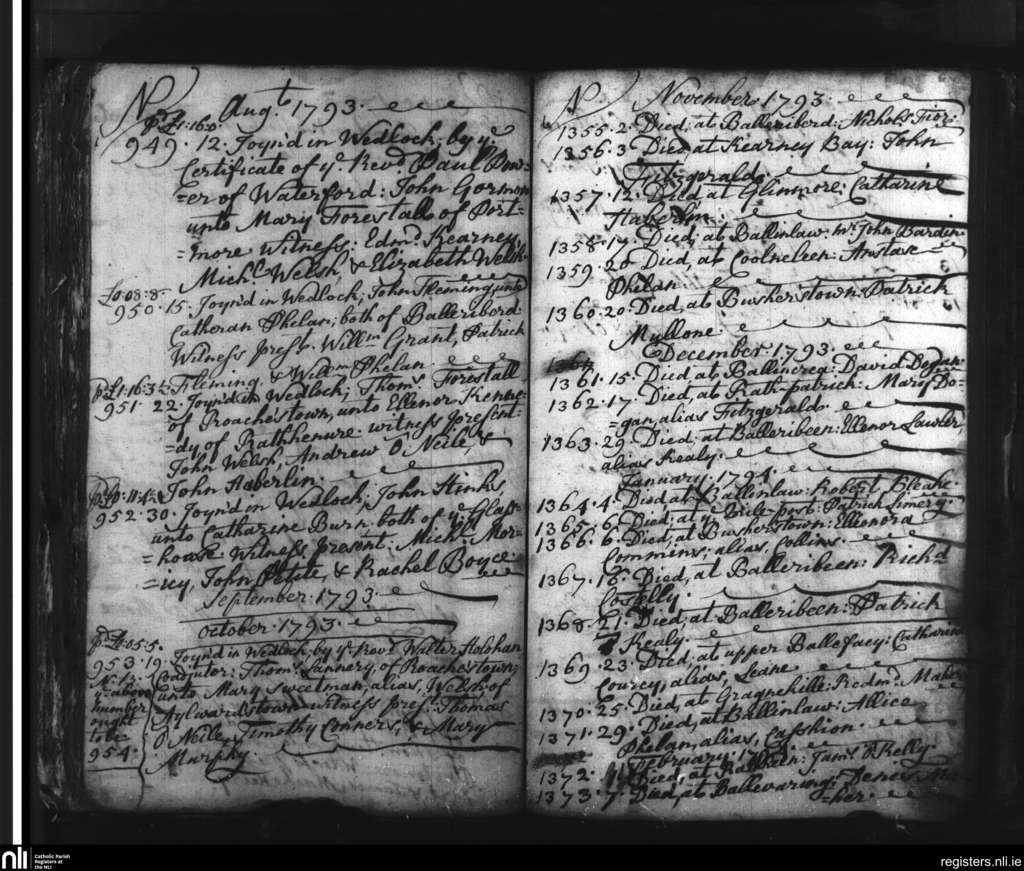 No Augt. 1793.
pd £1:16:0
949. 12. Joyn'd in Wedlock; by ye
Certificate of ye. Revd. Paul Pow=
=er of Waterford: John Gormon
unto Mary Forestall of Port=
=more Witness: Edmd. Kearney
Michl. Welsh, & Elizabeth Welsh.
£0:08:8.
950. 15. Joyn'd in Wedlock; John Fleming unto
Catheran Phelan; both of Balleriberd
Witness prest. Willm Grant, Patrick
Fleming. & Willm Phelan.
pd £1:16:3½
951. 22. Joyn'd in Wedlock; Thoms. Forestall
of Roachestown, unto Ellenor Kenne=
=dy of Rathkenure. witness present-
John Welsh, Andrew O Neile, &
John Haberlin.
952. 30. Joyn'd in Wedlock; John Hinks
unto Catharine Burn. both of ye Glass=
=house. Witness, present: Michl: Mor=
=ucy, John Petite, & Rachel Boyce.
September. 1793.
October. 1793.
pd £0:05:5.
953. 19. Joynd in Wedlock; by ye Revd Walter Holohan
Coadjutor: Thoms. Lannery, of Roachestown;
unto Mary Sweetman, alias, Welsh, of
Aylwardstown. witness prest: Thomas
O Neile, Timothy Conners, & Mary
Murphy
ye above
number
ought
to be
954.
N. November 1793.
1355. 2. Died, at Balleriberd: Nichols Fior-
1356. 3 Died, at Kearney Bay: John
Fitzgerald.
1357. 12. Died at Glinmore: Catharine
Haberlin.
1358. 19. Died, at Ballinlaw: Mr. John Bardin.
1359. 20. Died, at Coolneleen: Anstace
Phelan.
1360. 20. Died, at Busherstown: Patrick
Mullone.
December. 1793.
1361. 15. Died at Ballincrea: David Dogan.
1362. 17. Died, at Rath-patrick: Mary Do=
=gan, alias Fitzgerald.
1363. 29. Died; at Balleribeen: Ellenor Lawler,
alias Kealy.
January. 1794.
1364. 4. Died at Ballinlaw: Robert Bleake.
1365. 6. Died, at ye Mile-post: Patrick
1366. 6. Died, at Busherstown: Elleonora
Commins; alias, Collins.
1367. 16. Died, at Balleribeen: Richd
Costelly.
1368. 21. Died, at Balleribeen: Patrick
Kealy.
1369. 23. Died, at upper Ballefacy: Catharine
Courcy, alias, Leane
1370. 25. Died, at Gragnehille: Redm: Maher
1371. 29. Died, at Ballinlaw: Allice
Phelan, alias, Casshion.
February. 1794.
1372. Died, at Rathleen: Jams. O Kelly.
1373. 7. Died, at Ballewaring: Denis
=her.
nli
Catholic Parish
Registers at
the NLI
registers.nli.ie